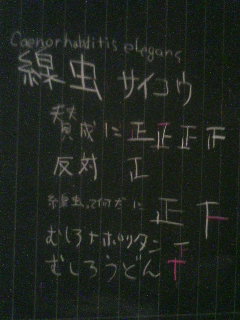 Caenorhabditis elegans
線虫 サイコウ
賛成に 正 正 正 正
反対 正
線虫って何だに 正 下
むしろナポリタン 正
むしろうどん 下